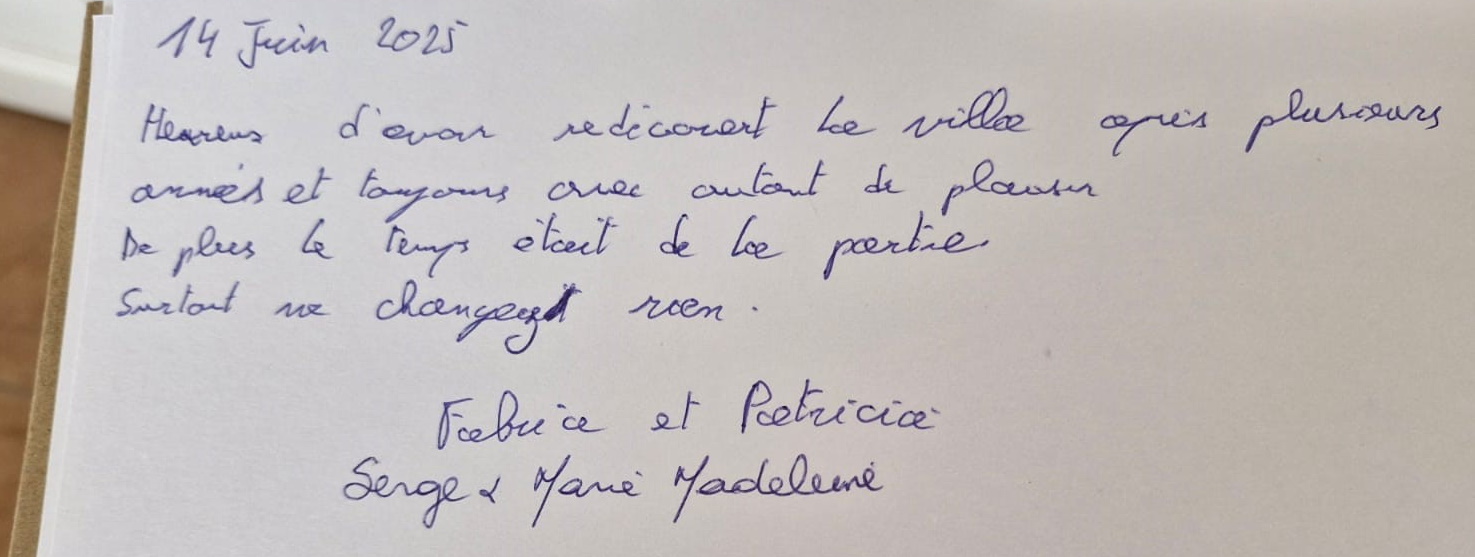 14 Juin 2025
Heureux d'avoir redécouvert la ville après plusieurs
années et toujours avec autant de plaisir
De plus le temps était de la partie.
Surtout ne changez rien.
Fabrice et Patricia
Serge & Marie Madeleine